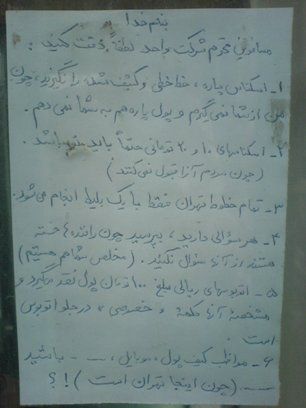 بنام خدا
مسافرین محترم شرکت واحد لطفاً دقت کنید:
۱- اسکناس پاره، خط خطی و کثیف نشده را نگیرید، چون
من از شما نمی گیرم و پول پاره هم به شما نمی دهم.
۲- اسکناسهای ۱۰ و ۲۰ تومانی حتماً باید باشد.
(چون مردم آنرا قبول نمی کنند)
۳- تمام خطوط تهران فقط با یک بلیط انجام می شود.
۴- هر سؤالی دارید، بپرسید چون راننده ها خسته
هستند، از آنها سؤال نکنید. (مخلص شما هم هستیم)
۵- اتوبوسهای ریالی مبلغ ۱۰۰ تومان پول نقد میگیرد و
مشخصهٔ آنها کلمهٔ خصوصی، در جلو اتوبوس
است.
۶- مواظب کیف پول، موبایل، ... باشید
... (چون اینجا تهران است)!؟